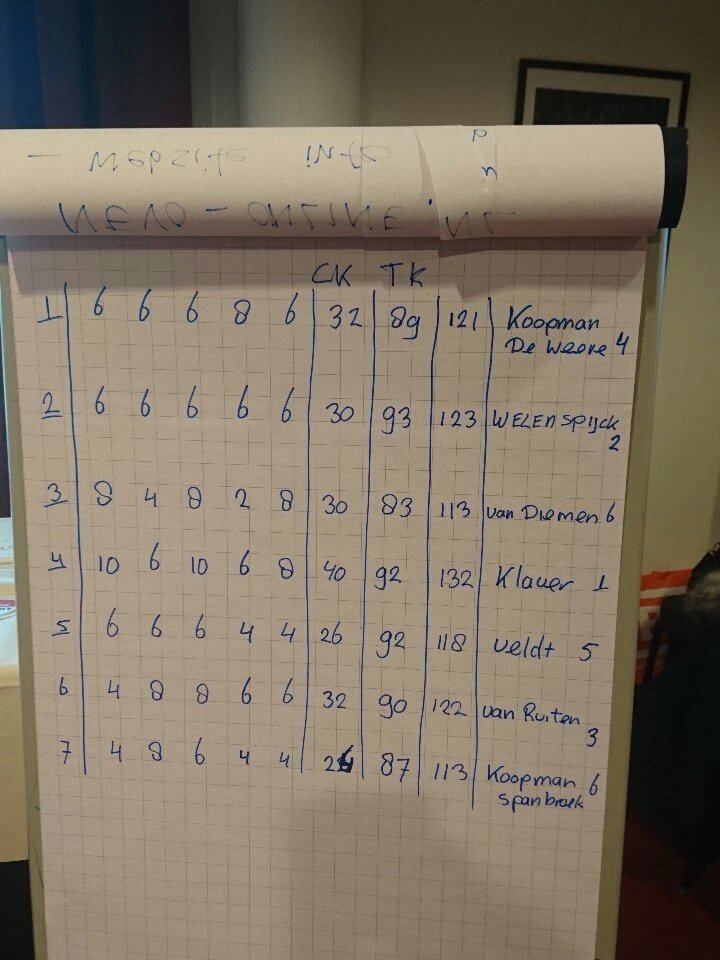 - website info
WEVO-ONLINE.NL
CK TK
1 6 6 6 8 6 32 89 121 Koopman
De Weere 4
2 6 6 6 6 6 30 93 123 WELENSPIJCK
2
3 8 4 8 2 8 30 83 113 van Diemen 6
4 10 6 10 6 8 40 92 132 Klauer 1
5 6 6 6 4 4 26 92 118 veldt 5
6 4 8 8 6 6 32 90 122 van Ruiten
3
7 4 8 6 4 4 26 87 113 Koopman 6
spanbroek